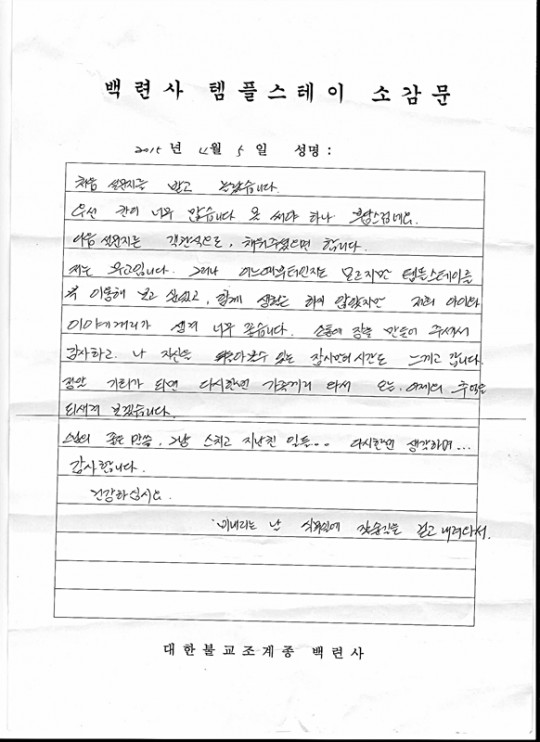 백련사 템플스테이 소감문
2015 년 4월 5 일 성명 :
처음 설문지를 받고 놀랐습니다.
우선 칸이 너무 많습니다 못 써야 하나 부담스럽네요.
다음 설문지는 객관식으로, 채워주셨으면 합니다.
저는 무교입니다. 그러나 어느때부터인지는 모르지만 템플스테이를
꼭 이용해 보고 싶었고, 함께 생활은 하여 않았지만 저희 아이와
이야기거리가 생겨 너무 좋습니다. 소통의 장을 만들어 주셔서
감사하고. 나 자신을 돌아볼수 있는 잠시만의 시간도 느끼고 갑니다.
만약 기회가 되면 다시한번 가족끼리 와서 오늘, 어제의 추억을
되새겨 보겠습니다.
스님의 좋은 말씀, 그냥 스치고 지나친 일들.. 다시한번 생각하며...
감사합니다.
건강하십시요.
비내리는 난 식목일에 걸고 내려와서.
대한불교조계종 백련사